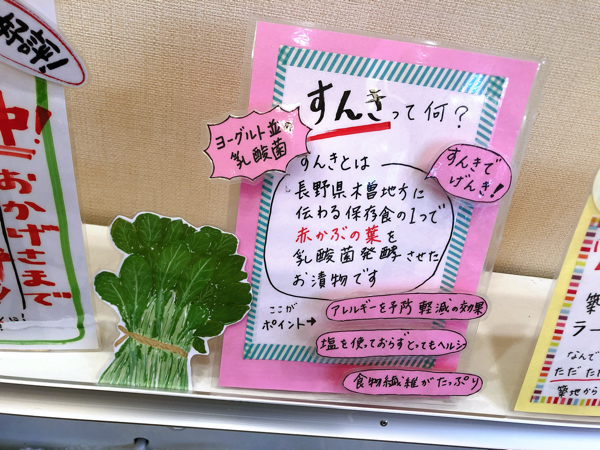 好評!
おかげさまで
すんきって何?
ヨーグルト並の
乳酸菌
すんきで
げんき!
すんきとは
長野県木曽地方に
伝わる保存食の1つで
赤かぶの葉を
乳酸菌発酵させた
お漬物です
ここが
ポイント→
アレルギーを予防 軽減の効果
塩を使っておらずとってもヘルシー
食物繊維がたっぷり
築
ラー
なんで
ただ
築地から